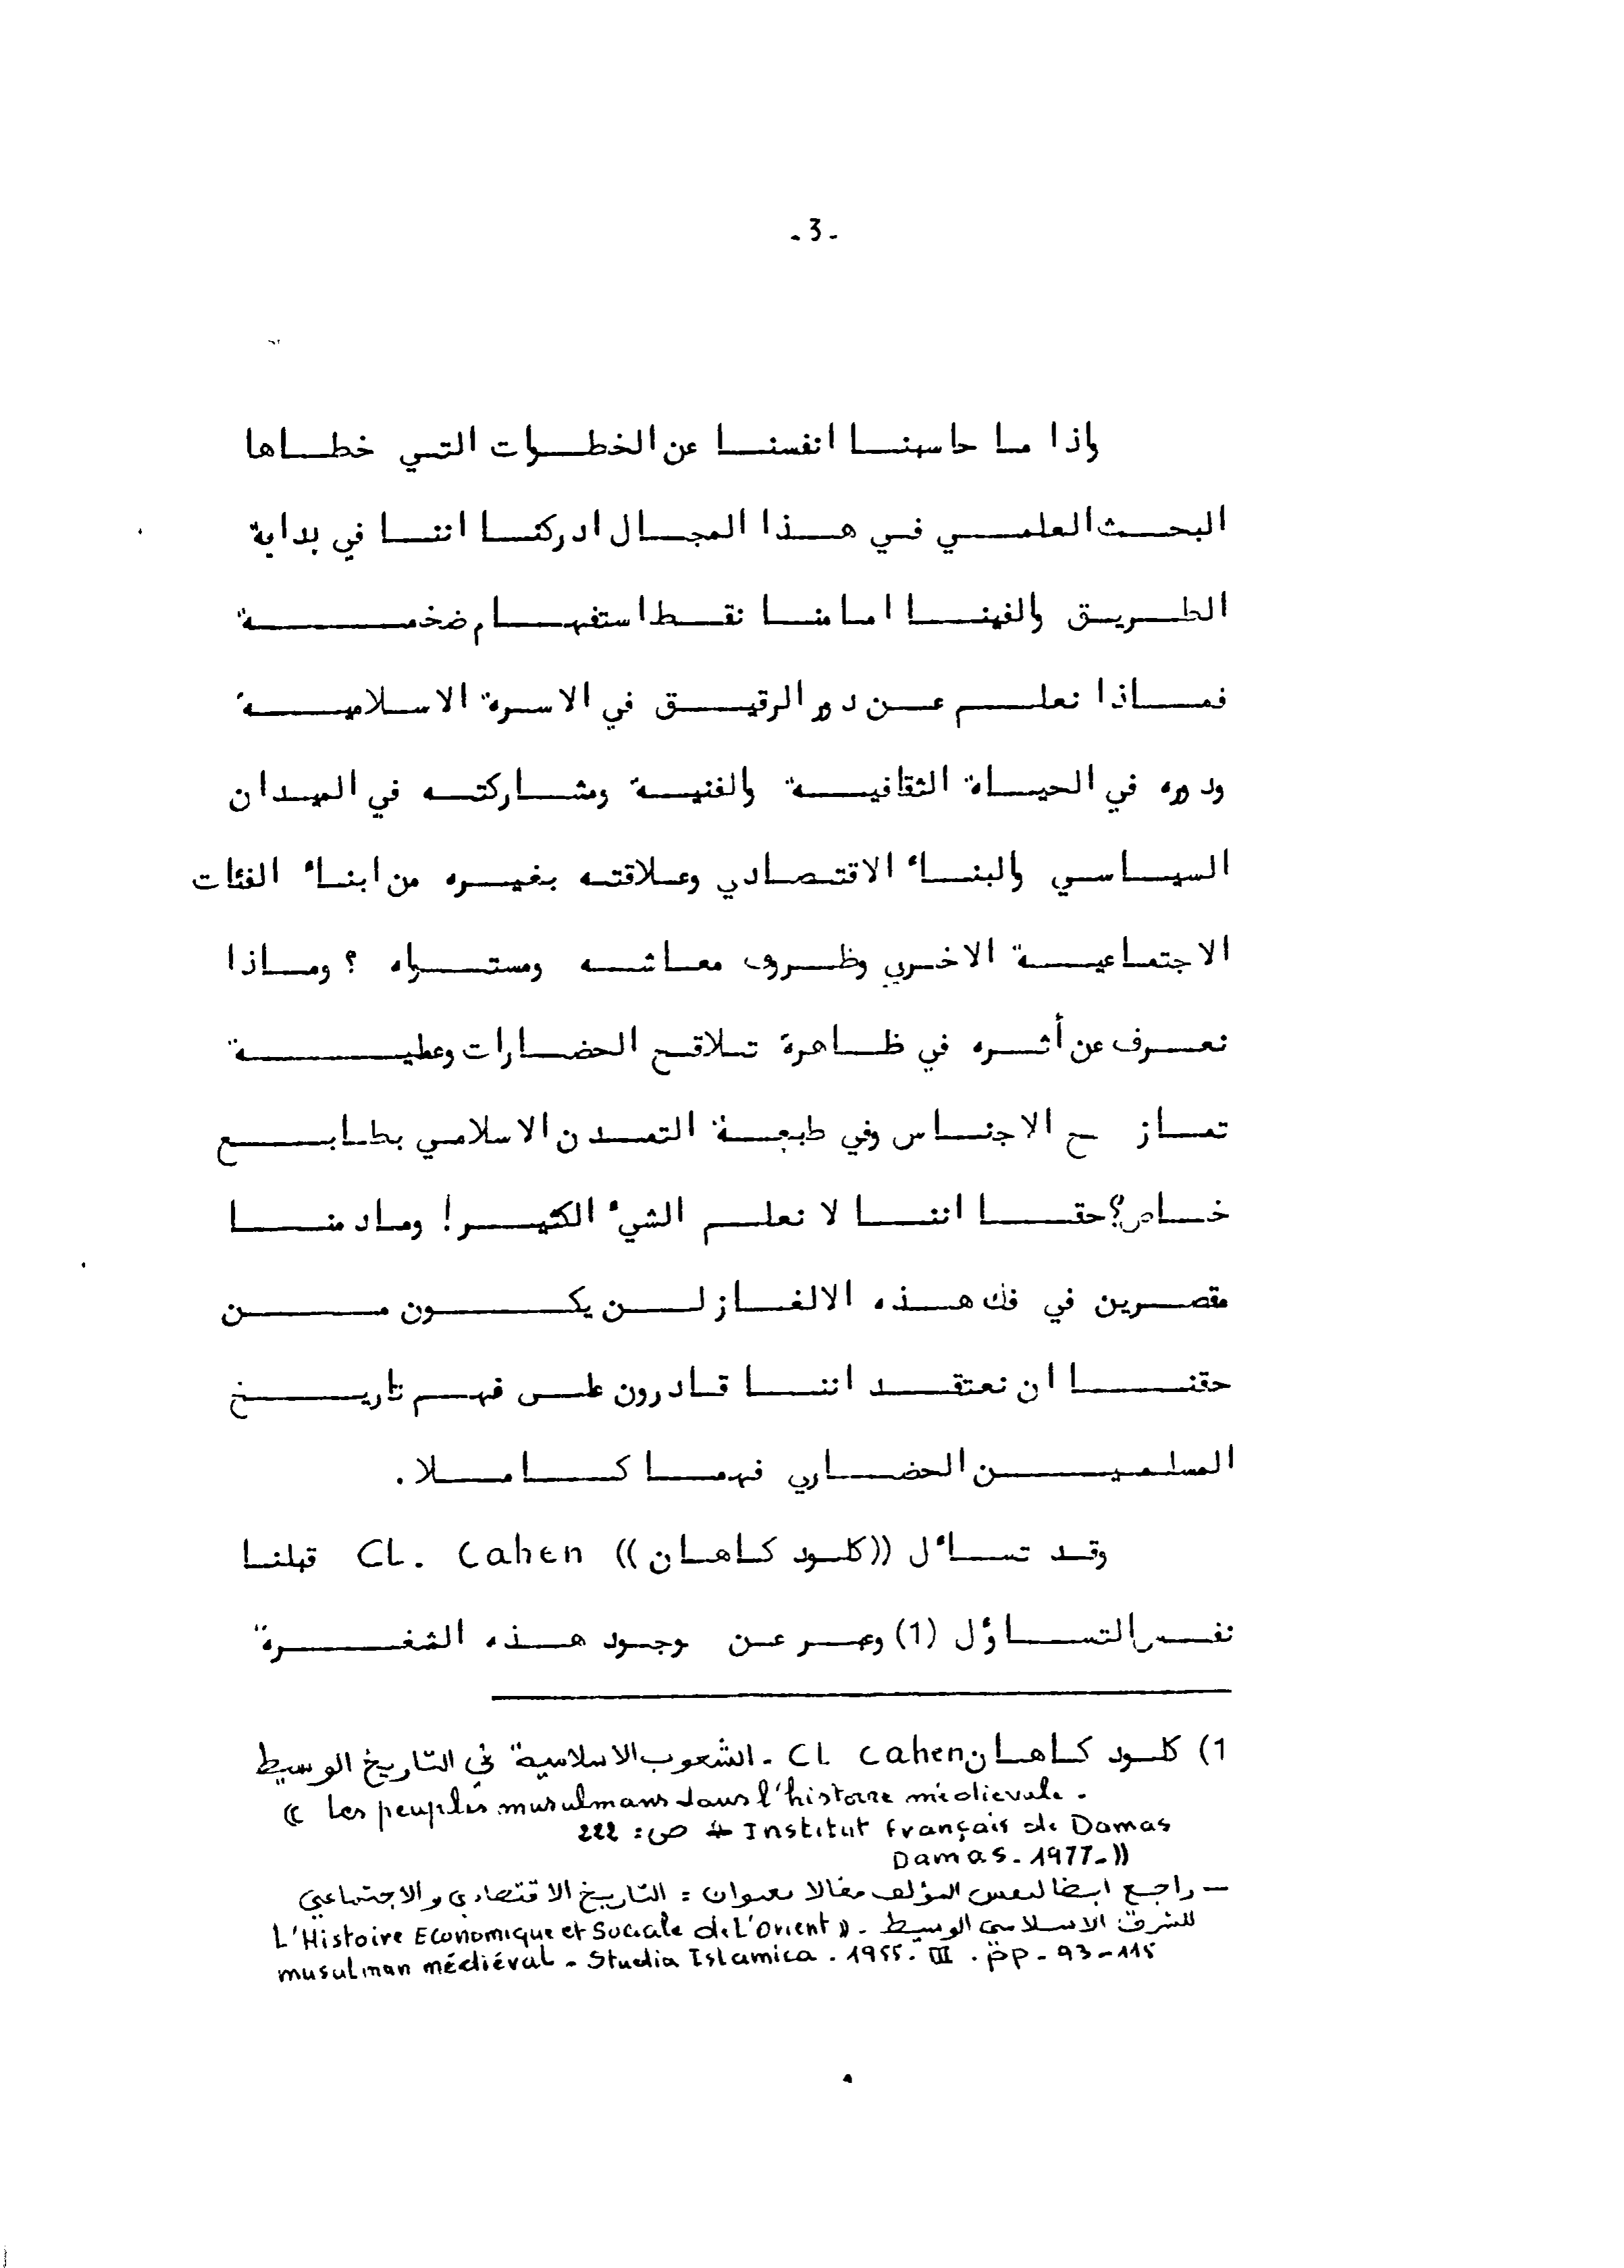 -3-
واذا ما حاسبنا انفسنا عن الخطوات التي خطاها
البحث العلمي في هذا المجال ادركنا اننا في بداية
الطريق والفينا امامنا نقط استفهام ضخمة
فماذا نعلم عن دور الرقيق في الاسرة الاسلامية
ودوره في الحياة الثقافية والفنية ومشاركته في الميدان
السياسي والبناء الاقتصادي وعلاقته بغيره من ابناء الفئات
الاجتماعية الاخرى وظروف معاشه ومستواه ؟ وماذا
نعرف عن أثره في ظاهرة تلاقح الحضارات وعملية
تمازج الاجناس وفي طبعة التمدن الاسلامي بطابع
خاص؟ حقا اننا لا نعلم الشيء الكثير! ومادمنا
مقصرين في فك هذه الالغاز لن يكون من
حقنا ان نعتقد اننا قادرون على فهم تاريخ
المسلمين الحضاري فهما كاملا .
وقد تساءل ((كلود كاهان)) CL. Cahen قبلنا
نفس التساؤل (1) وعبر عن وجود هذه الثغرة
1) كلود كاهان CL Cahen - الشعوب الاسلامية في التاريخ الوسيط
(( Les peuples musulmans dans l'histoire médievale.
Institut français de Damas ص: 222
Damas - 1977 - ))
— راجع ايضا لنفس المؤلف مقالا بعنوان : التاريخ الاقتصادي والاجتماعي
للشرق الاسلامي الوسيط - (( L'Histoire Economique et Sociale de L'Orient
musulman médiéval - Studia Islamica . 1955 - III . pp - 93-115